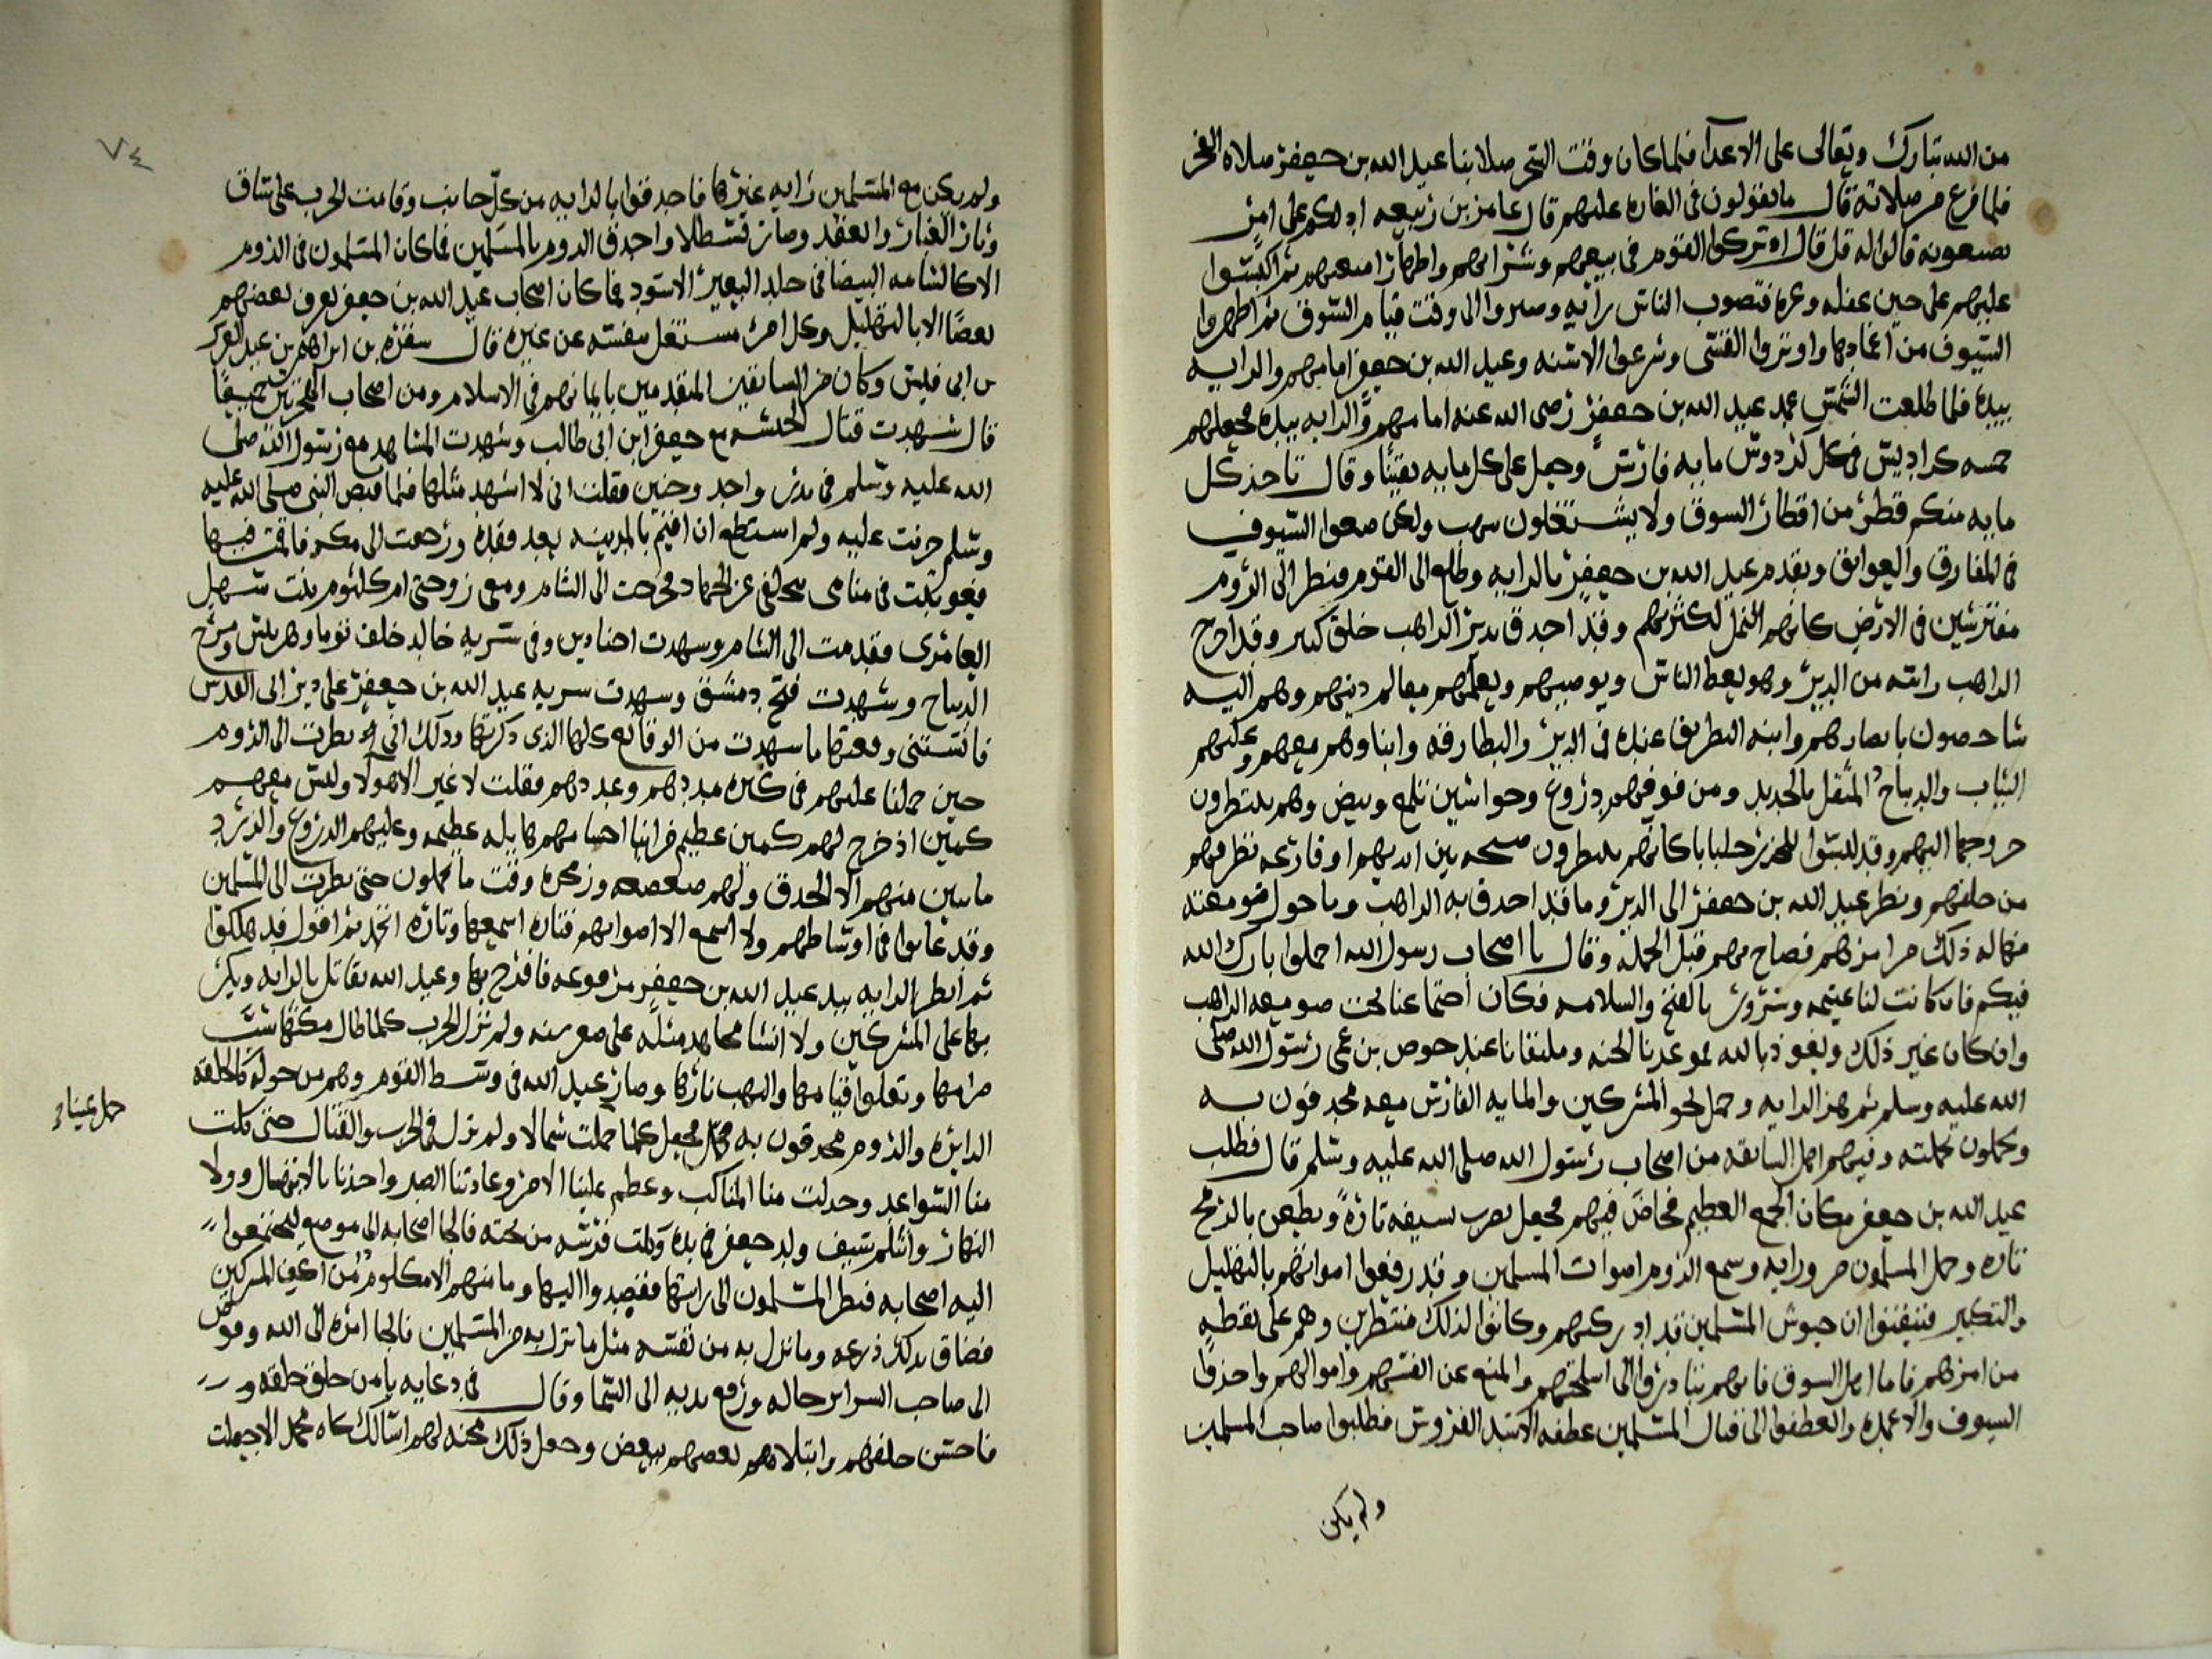 من الله تبارك وتعالى على الاعدا فلما كان وقت السحر صلا بنا عبد الله بن جعفر صلاه الفجر
فلما فرغ من صلاته قال ما تقولون في الغاره عليهم قال عامر بن ربيعه ادلكم على امر
تصنعونه قالوا له قل قال اتركوا القوم في بيعهم وشرايهم واظهار امتعتهم ثم اكبسوا
عليهم على حين غفله وغره فتصوب الناس رايه وصبروا الى وقت قيام السوق ثم اظهروا
السيوف من اغمادها واوتروا القسى وشرعوا الاسنه وعبد الله بن جعفر امامهم والرايه
بيده فلما طلعت الشمس عمد عبد الله بن جعفر رضى الله عنه امامهم والرايه بيده فجعلهم
خمسه كراديس في كل كردوس مايه فارس وجعل على كل مايه نقيبا وقال تاخذ كل
مايه منكم قطر من اقطار السوق ولا يشتغلون بنهب ولكن ضعوا السيوف
في المفارق والعواتق وتقدم عبد الله بن جعفر بالرايه وطلع الى القوم فنظر الى الروم
مفترشين في الارض كانهم النمل لكثرتهم وقد احدق بدير الراهب خلق كثير وقد اخرج
الراهب راسه من الدير وهو يعظ الناس ويوصيهم ويعلمهم معالم دينهم وهم اليه
شاخصون بابصارهم وابنه البطريق عنده في الدير والبطارقه وابناوهم معهم وعليهم
الثياب والديباج المثقل بالحديد ومن فوقهم دروع وجواشين تلمع وبيض وهم ينتظرون
خروجها اليهم وقد لبسوا جلبابا كانهم ينتظرون صيحه بين ايديهم او قارعه تطرقهم
من خلفهم ونظر عبد الله بن جعفر الى الدير وما قد احدق به الراهب وما حول صومعته
فهاله ذلك من امرهم فصاح بهم قبل الحمله وقال يا اصحاب رسول الله احملوا بارك الله
فيكم فان كانت لنا غنيمه وسرور بالفتح والسلامه فكان اجتماعنا تحت صومعه الراهب
وان كان غير ذلك ونعوذ بالله فموعدنا الجنه وملتقانا عند حوض بن عمى رسول الله صلى
الله عليه وسلم ثم هز الرايه وحمل نحو المشركين والمايه الفارس معه محدقون به
وحملون بحملته وفيهم اهل السابقه من اصحاب رسول الله صلى الله عليه وسلم قال فطلب
عبد الله بن جعفر مكان الجمع العظيم فخاض فيهم فجعل يضرب بسيفه تارة ويطعن بالرمح
تاره وحمل المسلمون من ورايه وسمع الروم اصوات المسلمين وقد رفعوا اصواتهم بالتهليل
والتكبير فتيقنوا ان جيوش المسلمين قد ادركتهم وكانوا لذلك منتظرين وهم على يقظه
من امرهم فاما اهل السوق فانهم تبادروا الى اسلحتهم والمنع عن انفسهم واموالهم واخذوا
السيوف والاعمده وانعطفوا الى قتال المسلمين عطفه الاسد الفروس فطلبوا صاحب المسلمين
ولم يكن
٧٤
ولم يكن مع المسلمين رايه غيرها فاحدقوا بالرايه من كل جانب وقامت الحرب على ساق
وثار الغبار وانعقد وصار قسطلا واحدق الروم بالمسلمين فما كان المسلمون في الروم
الا كالشامه البيضا في جلد البعير الاسود فما كان اصحاب عبد الله بن جعفر يعرف بعضهم
بعضا الا بالتهليل وكل امرئ مشتغل بنفسه عن غيره قال سفره بن ابراهيم بن عبد
بن ابى قيس وكان من السابقين المتقدمين بايمانهم في الاسلام ومن اصحاب الهجرتين جميعا
قال شهدت قتال الحبشه مع جعفر ابن ابي طالب وشهدت المشاهد مع رسول الله صلى
الله عليه وسلم في بدر واحد وحنين فقلت انى لا اشهد مثلها فلما قبض النبى صلى الله عليه
وسلم حزنت عليه ولم استطع ان اقيم بالمدينه بعد فقده ورجعت الى مكه فاقمت فيها
فعوتبت في منامى بتخلفى عن الجهاد فخرجت الى الشام ومعى زوجتى ام كلثوم بنت سهيل
العامرى فقدمت الى الشام وشهدت اجنادين وفي سريه خالد خلف توما وهربيس ومرج
الديباج وشهدت فتح دمشق وشهدت سريه عبد الله بن جعفر على دير ابى القدس
فانستنى وقعتها ما شهدت من الوقائع كلها الذى ذكرتها وذلك انى نظرت الى الروم
حين حملنا عليهم في كثره مددهم وعددهم فقلت لا غير الا هولا وليس معهم
كمين اذ خرج لهم كمين عظيم فراينا اجسامهم هايله عظيمه وعليهم الدروع والزرد
ما يبين منهم الا الحدق ولهم صعصعه وزمجره وقت ما يحملون حتى نظرت الى المسلمين
وقد غابوا في اوساطهم ولا اسمع الا اصواتهم فتاره اسمعها وتاره اتخمد ثم اقول قد هلكوا
ثم انظر الرايه بيد عبد الله بن جعفر مرفوعه فافرح بها وعبد الله يقاتل بالرايه ويكر
بها على المشركين ولا انشا مجاهد مثله على صغر سنه ولم تزل الحرب كلما طال مكثها شب
ضرامها وتعلوا قتامها والتهب نارها وصار عبد الله في وسط القوم وهم من حوله كالحلقه
الدايره والروم محدقون به فجعل كلما حملت شمالا ولم نزل في الحرب والقتال حتى كلت
حمل يمينا
منا السواعد وخدلت منا المناكب وعظم علينا الامر وعادتنا الصبر واخذنا بالانفصال وولا
النهار وانثلم سيف ولد جعفر في يده وكلت فرسه من تحته فالجا اصحابه الى موضع ليجتمعوا
اليه اصحابه فنظر المسلمون الى رايتها فقصدوا اليها وما منهم الا مكلوم من المشركين
فضاق بذلك ذرعه وما نزل به من نفسه مثل ما نزل به من المسلمين فالجا امره الى الله وفوض
الى صاحب السراير حاله ورفع يديه الى السما وقال في دعايه يا من خلق خلقه و
فاحسن خلقهم وابتلاهم بعضهم ببعض وجعل ذلك محنه لهم اسالك بجاه محمد الا جعلت